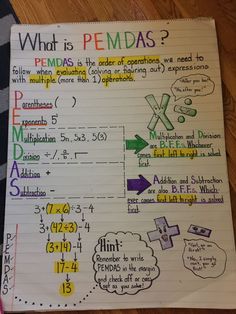 What is PEMDAS?
PEMDAS is the order of operations we need to
follow when evaluating (solving or figuring out) expressions
with multiple (more than 1) operations.
"After you, bud!"
"No, after you!"
Parentheses ( )
Exponents 5²
Multiplication 5n, 5x3, 5(3)
Division
Addition +
Subtraction -
Multiplication and Division
are B.F.F.s. Whichever
comes first left to right is solved
first.
Addition and Subtraction
are also B.F.F.s. Which-
ever comes first left to right is solved
first.
3+(7×6)÷3-4
3+(42÷3)-4
3+(14)-4
17-4
13
PEMDAS
Hint:
Remember to write
PEMDAS in the margin
and check off or cross
out as you solve!
"No, I simply
can't, you go
first!"